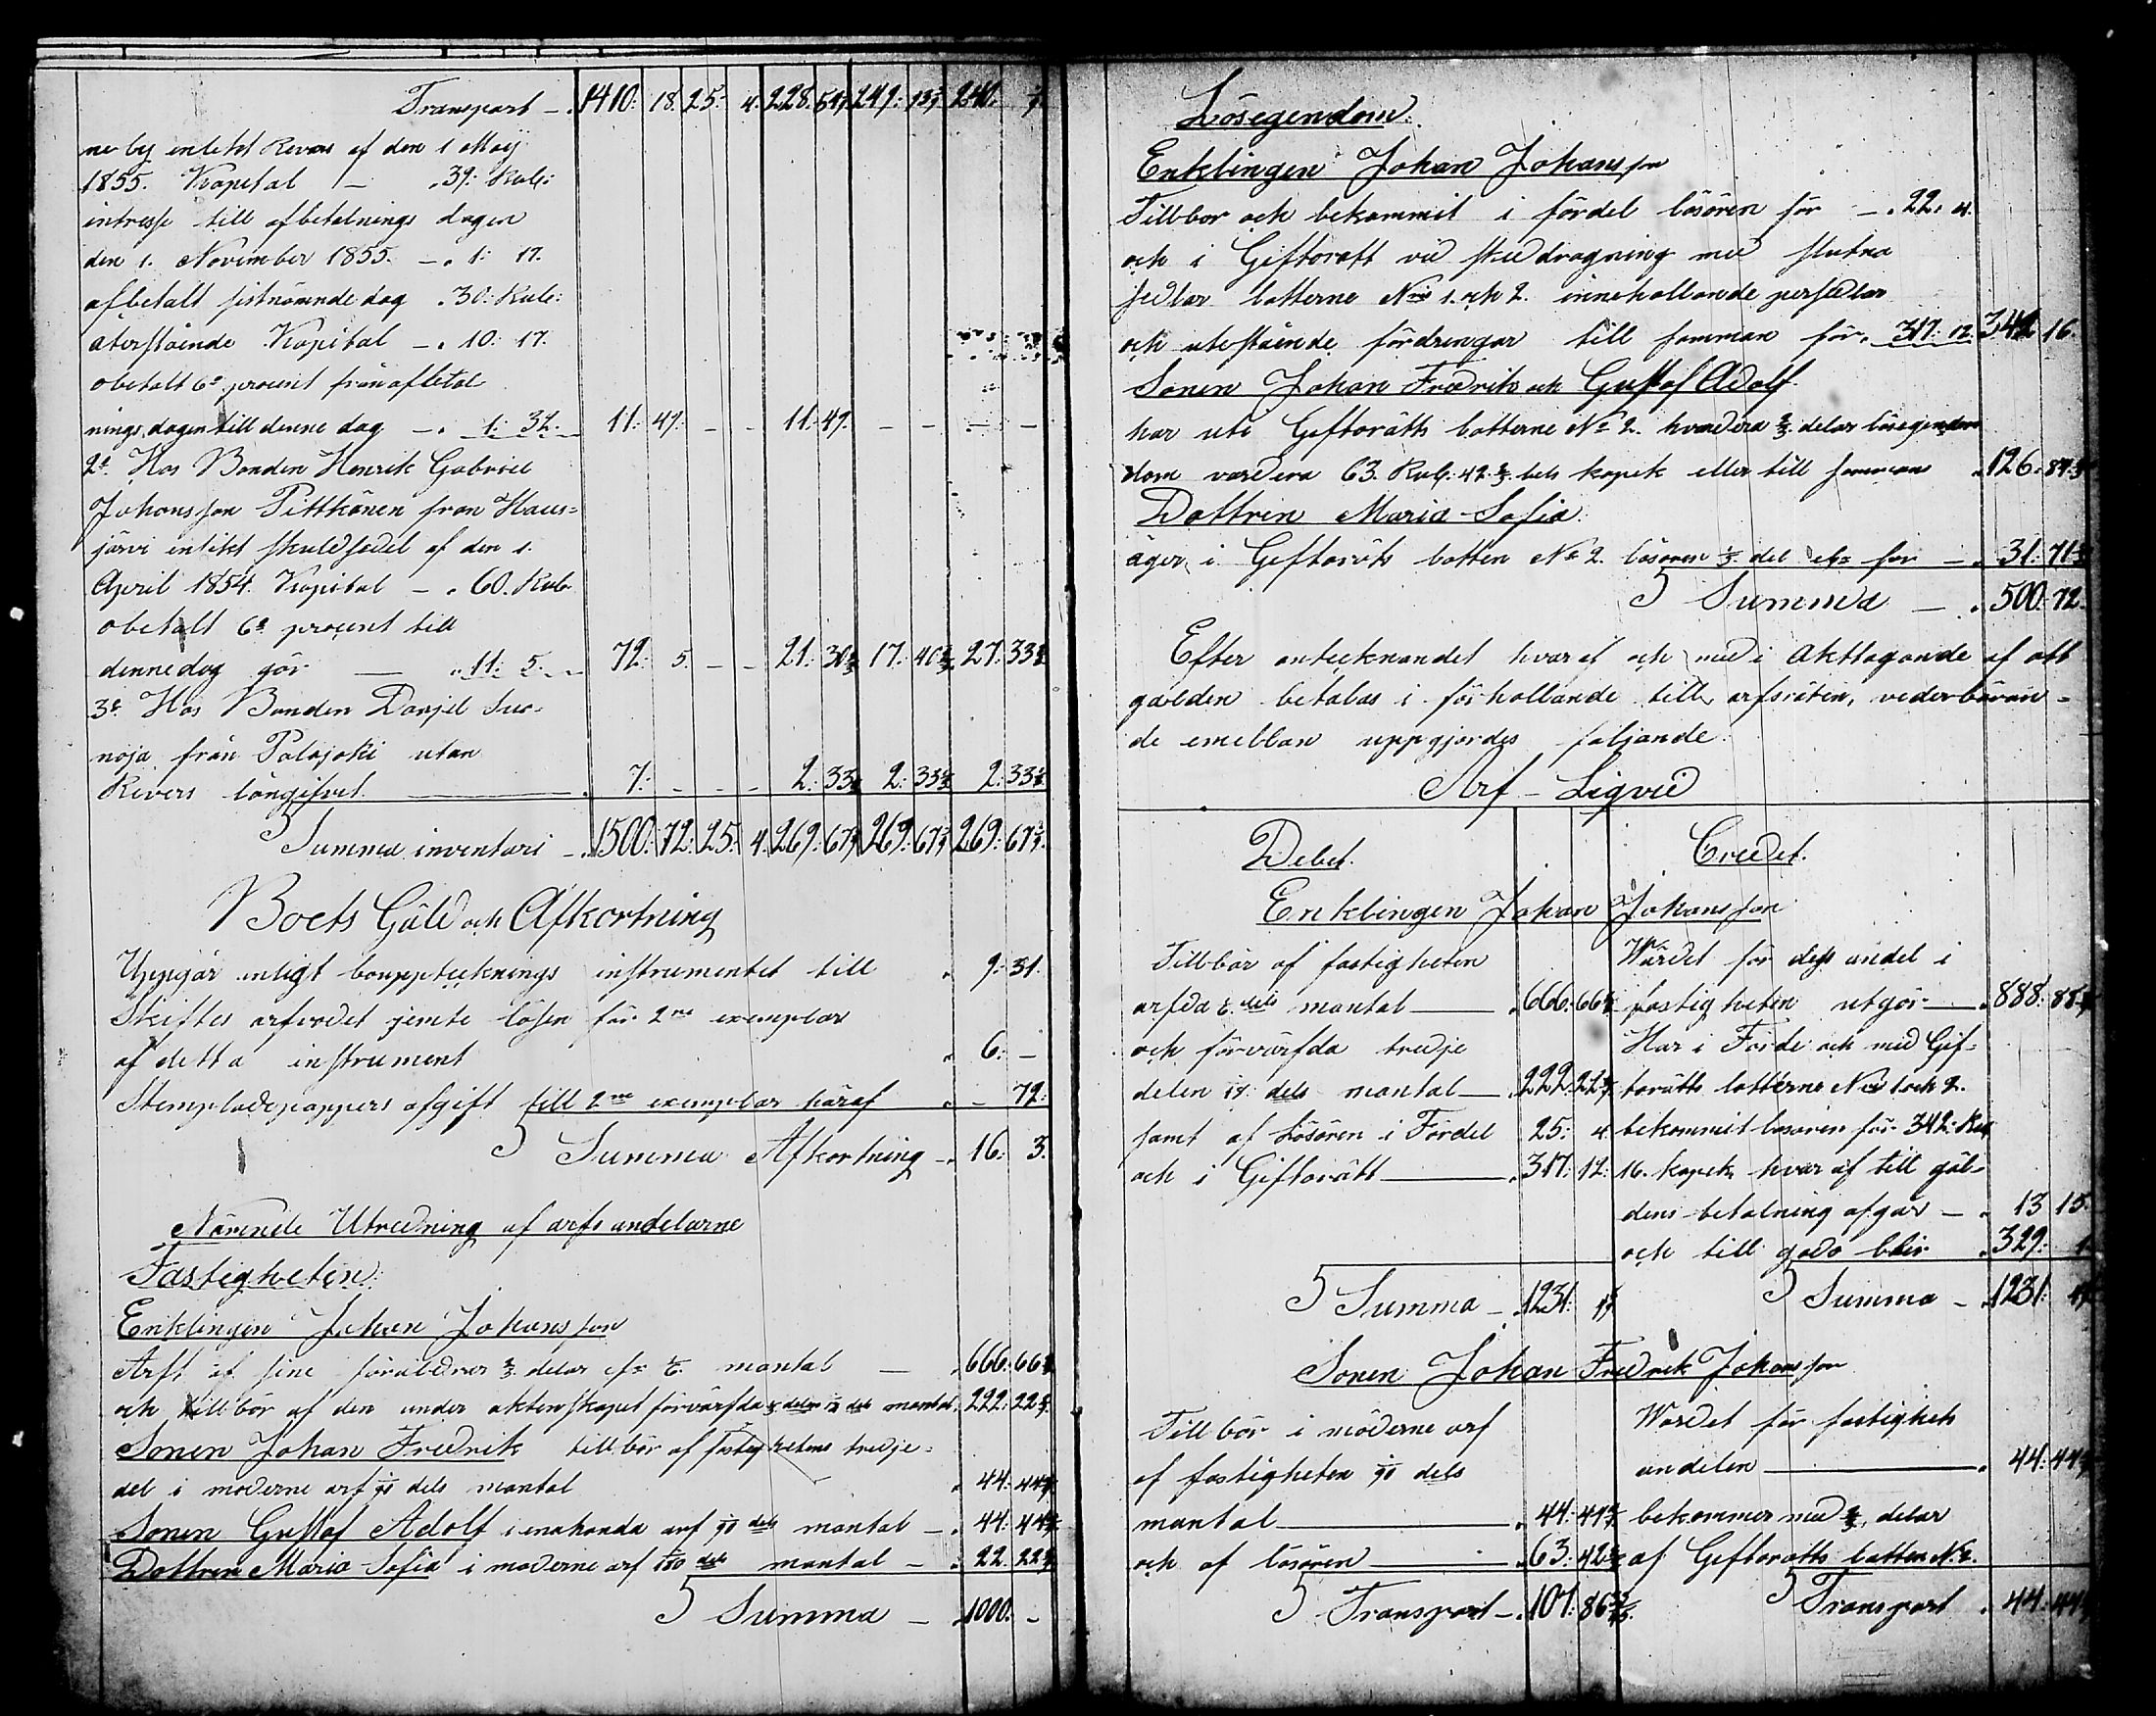 Transport – 1410: 18. 25: 4. 228. 247: 240.
ne by enlikt Revers af den 1 Maij
1855. Kapital – 39: Rub:
intresse till afbetalnings dagen
den 1. November 1855. – 1: 17.
afbetalt sistnämnde dag 30: Rub:
återstående Kapital – 10: 17.
obetalt 6 procent från afbetal
nings dagen till denne dag – 1: 32. 11: 49. – – 11: 49. – – – –
2. Hos Bonden Henrik Gabriel
Johansson Pittkänen från Haus=
järvi enlikt skuldsedel af den 1.
April 1854. Kapital – 60. Rub.
obetalt 6 procent till
denne dag gör – 11: 5. – 72: 5. – – 21: 30 17: 40 27: 33
3. Hos Bonden Danjel
noja från Palojoki utan
Revers långifvet. 7: – – – 2: 33 2: 33 2: 33
Summa inventari – 1500: 72: 25: 4. 269: 67 269: 67 269: 67
Boets Gäld och Afkortning
Uppgår enligt bouppteknings instrumentet till 9: 31.
Skiftes arfvodet jemte lösen för 2ne exemplar
af detta instrument 6: –
Stempladepappers afgift till 2ne exemplar häraf – 72:
Summa Afkortning – 16: 3.
Närende Utredning af arfs andelarne
Fastigheten:
Enklingen Johan Johansson
Arft af sine föräldrar 2/3 delar mantal – 666: 66
och till bör af den under äktenskapet förvärfda mantal. 222: 22
Sonen Johan Fredrik till bör af fastighetens tredje=
del i möderne arf 1/90 dels mantal 44: 44
Sonen Gustaf Adolf i enahanda arf 1/90 dels mantal – 44: 44
Dottren Maria Sofia i moderne arf 1/180 dels mantal – 22 22
Summa – 1000: –
Lösegendom:
Enklingen Johan Johansson
Tillbör och bekommit i fördel lösören för – 22: 4.
och i Giftorätt vid skeddragning med slutna
sedlar lotterne Nris 1. och 2. innehållande persedlar
och utestående fördringar till samman för. 317: 12. 342 16.
Sonen Johan Fredrik och Gustaf Adolf
har uti Giftorätts lotterne No 2. hvardera 2/5 delar lösegendom
dom vardera 63. Rub: 42 2/5 dels kopek eller till sammans 126. 84
Dottren Maria Sofia:
äger i Giftoräts lotten No 2. lösören 1/5 del för – 31: 71
Summa – 500. 72.
Efter antecknandet häraf och med i akttagande af att
gälden betalas i förhållande till arfsräten, vederböran=
de emellan uppgjordes följande:
Arf – Liqvid
Debet. Credit.
Enklingen Johan Johansson
Tillbör af fastigheten
arfda 6. dels mantal – 666: 66
och förvärfda tredje
delen 18. dels mantal – 222: 22
samt af Lösören i Fördel 25: 4.
och i Giftorätt – 317: 12:
Summa – 1231: 4
Wärdet för dess andel i
fastigheten utgör – 888: 88
Har i Fördel och med Gif=
torätts lotterne Nris 1 och 2.
bekommit lösören för 342: Rub
16. kopek hvar af till gäl=
dens betalning afgår – 13 15.
och till godo blir 329: 1
Summa – 1231: 4
Sonen Johan Fredrik Johansson
Till bör i möderne arf
af fastigheten 1/90 dels
mantal – 44: 44
och af lösören – 63: 42
Transport – 107: 86
Wärdet för fastighets
andelen – 44: 44
bekommer med 2/5 delar
af Giftorätts lotten No 2.
Transport 44: 44